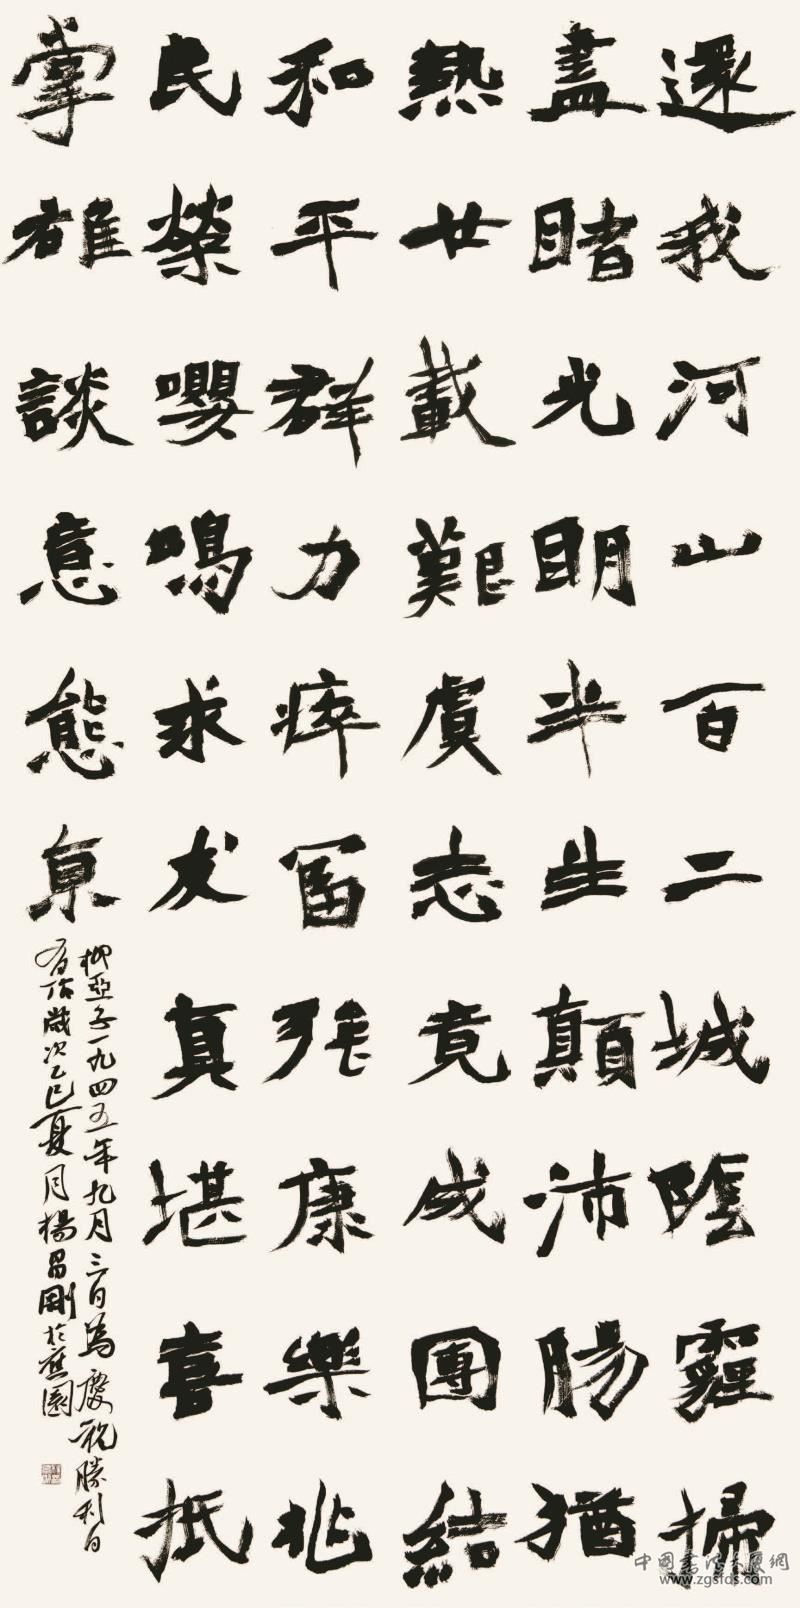 還我河山百二城陰霾掃
盡睹光明半生顛沛腸猶
熱廿載艱虞志竟成團結
和平群力瘁冨強康樂兆
民榮嚶鳴求友真堪喜抵
掌雄談意態亰
柳亞子一九四五年九月三日為慶祝勝利日
有作歲次乙巳夏月楊昌剛於園
www.zgsfds.com